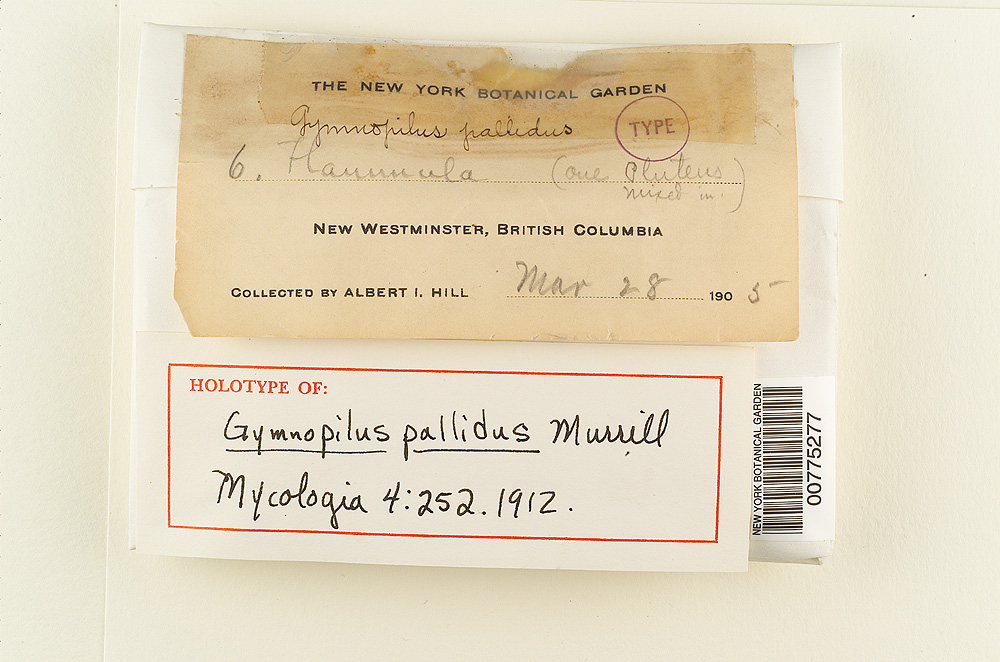 THE NEW YORK BOTANICAL GARDEN
Gymnopilus pallidus
TYPE
6. Flammula (one Pluteus
mixed in.)
NEW WESTMINSTER, BRITISH COLUMBIA
COLLECTED BY ALBERT I. HILL Mar 28 1905
HOLOTYPE OF:
Gymnopilus pallidus Murrill
Mycologia 4:252. 1912.
NEW YORK BOTANICAL GARDEN
00775277